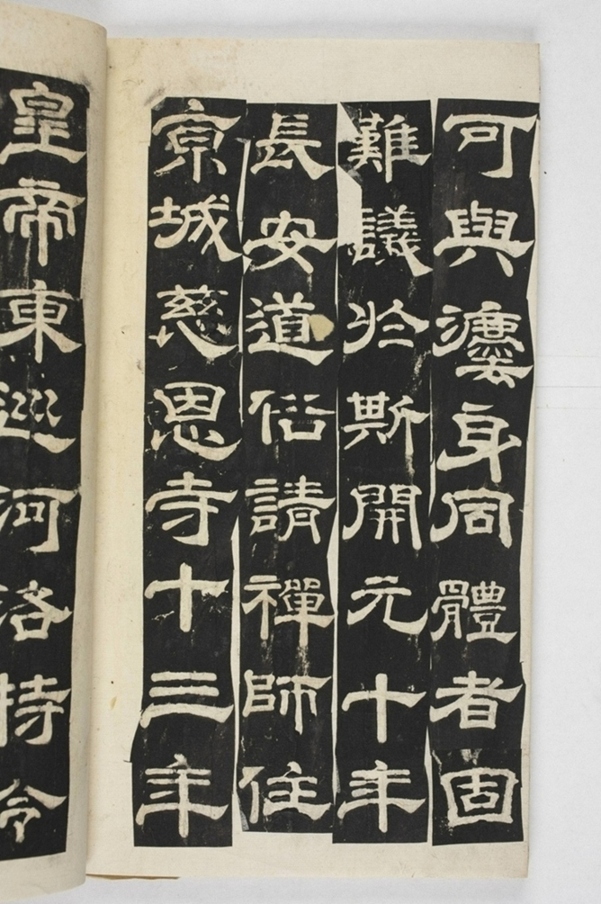 可與灋身同體者固
難議於斯開元十年
長安道俗請禪師住
京城慈恩寺十三年
皇帝東巡河洛特令